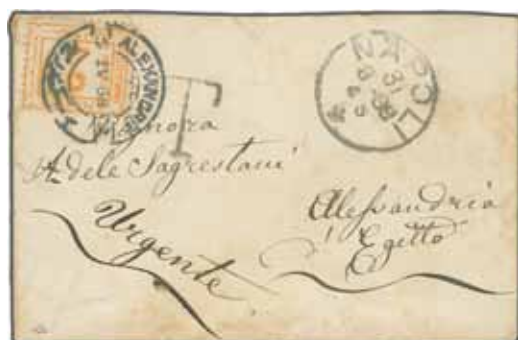 ALEXANDRIE
T
NAPOLI
31
89
Signora
Adele Sagrestani
Urgente
Alessandria
Egitto